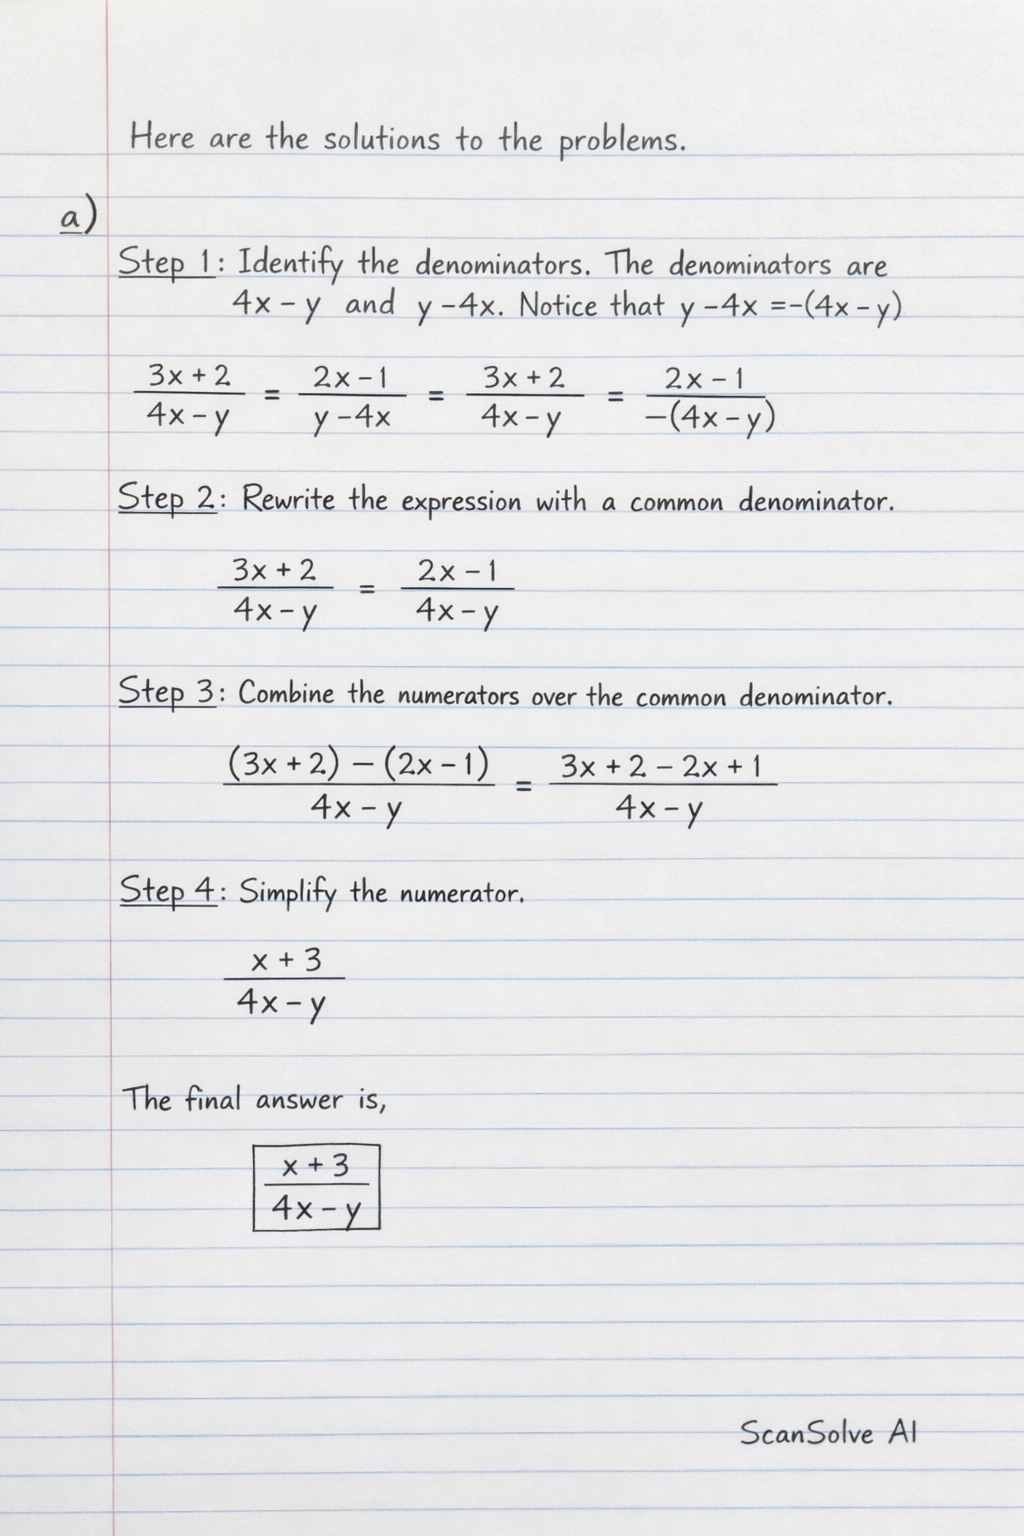 Here are the solutions to the problems.
a)
Step 1: Identify the denominators. The denominators are
4x - y and y - 4x. Notice that y - 4x = -(4x - y)
(3x + 2)/(4x - y) = (2x - 1)/(y - 4x) = (3x + 2)/(4x - y) = (2x - 1)/(-(4x - y))
Step 2: Rewrite the expression with a common denominator.
(3x + 2)/(4x - y) = (2x - 1)/(4x - y)
Step 3: Combine the numerators over the common denominator.
((3x + 2) - (2x - 1))/(4x - y) = (3x + 2 - 2x + 1)/(4x - y)
Step 4: Simplify the numerator.
(x + 3)/(4x - y)
The final answer is,
(x + 3)/(4x - y)
ScanSolve AI